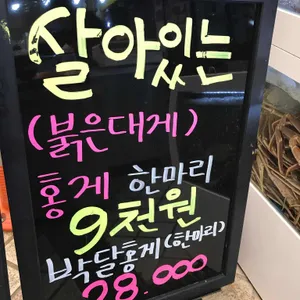 살아있는
(붉은대게)
홍게 한마리
9천원
박달홍게(한마리)
28.000